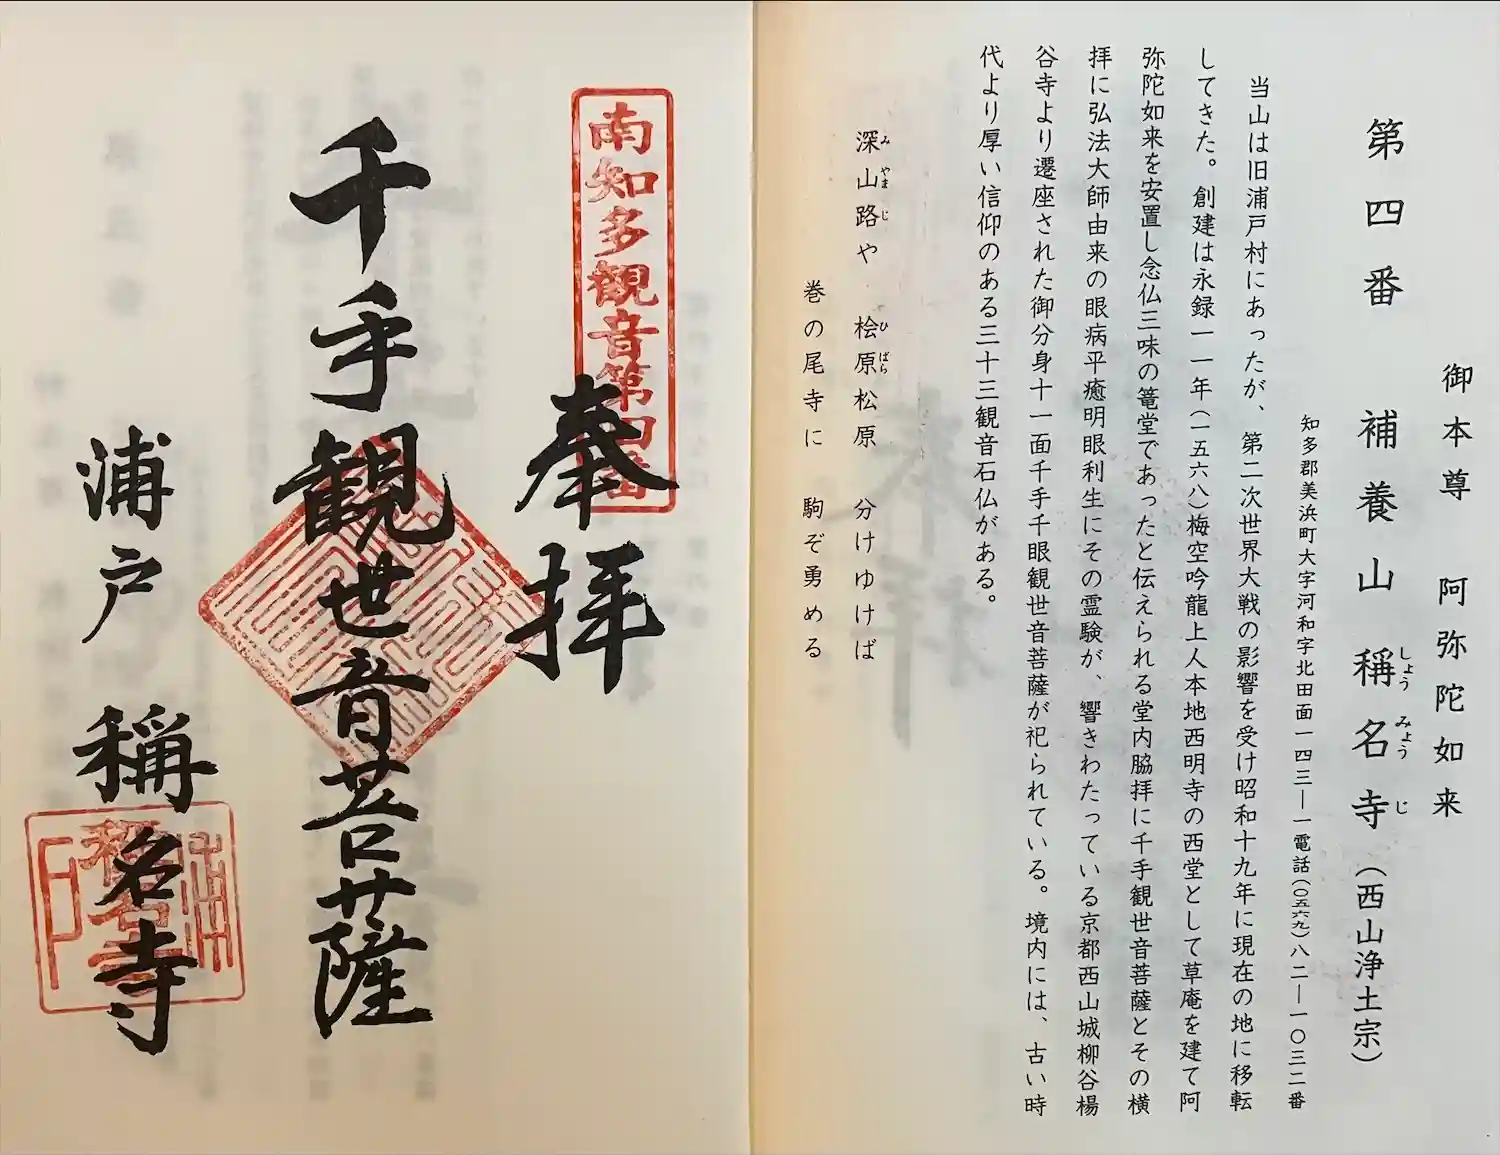 御本尊 阿弥陀如来
第四番 補養山 稱名寺(西山浄土宗)
しょうみょうじ
知多郡美浜町大字河和字北田面一四三―一電話(〇五六九)八二―一〇三二番
当山は旧浦戸村にあったが、第二次世界大戦の影響を受け昭和十九年に現在の地に移転
してきた。創建は永録一一年(一五六八)梅空吟龍上人本地西明寺の西堂として草庵を建て阿
弥陀如来を安置し念仏三味の篭堂であったと伝えられる堂内脇拝に千手観世音菩薩とその横
拝に弘法大師由来の眼病平癒明眼利生にその霊験が、響きわたっている京都西山城柳谷楊
谷寺より遷座された御分身十一面千手千眼観世音菩薩が祀られている。境内には、古い時
代より厚い信仰のある三十三観音石仏がある。
みやまじ ひばら
深山路や 桧原松原 分けゆけば
巻の尾寺に 駒ぞ勇める
南知多観音第四番
奉拝
千手観世音菩薩
浦戸 稱名寺